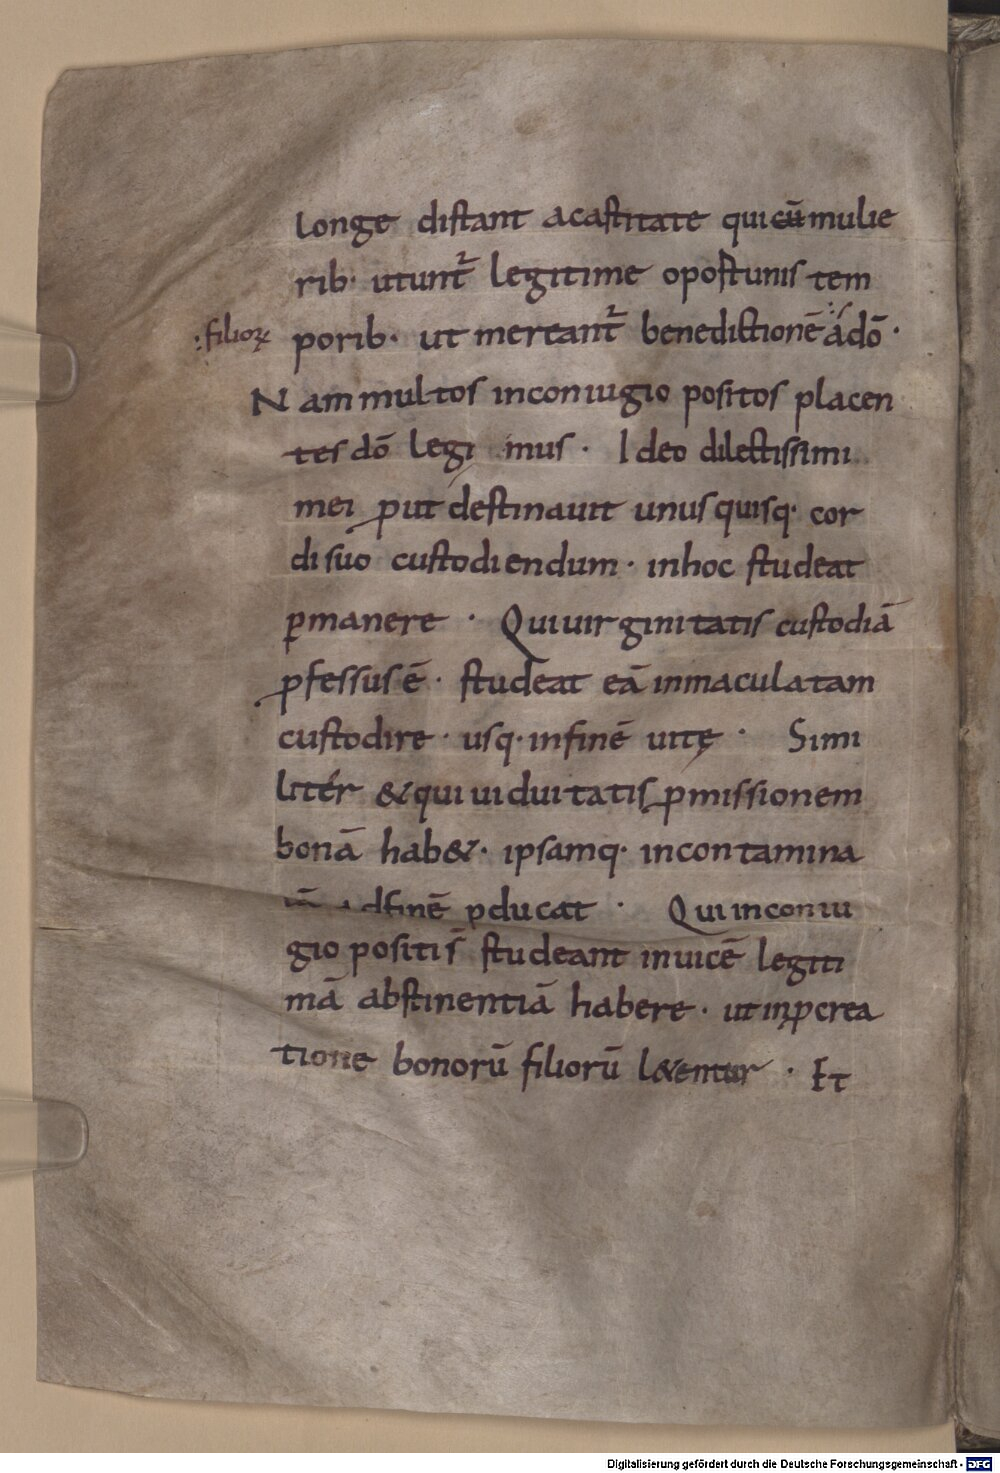 longe distant acastitate quicū mulie
rib· utunt᷑ legitime opostunis tem
:filioꝝ porib· ut mereant᷑ benedictionē adō·
Nam multos inconiugio positos placen
tes dō legimus· Ideo dilectissimi
mei ꝓut destinauit unusquisq· cor
di suo custodiendum· inhoc studeat
ꝑmanere· Qui uirginitatis custodiā
ꝓfessus ē· studeat eā inmaculatam
custodire· usq· infinē uitę· Simi
litér & qui uiduitatis ꝓmissionem
bonā hab&· ipsamq· incontamina
adfinē ꝑducat· Qui inconiu
gio positi s̄ studeant inuicē legiti
mā abstinentiā habere· ut inꝓcrea
tione bonorū filiorū l&entur· Et
Digitalisierung gefördert durch die Deutsche Forschungsgemeinschaft - DFG